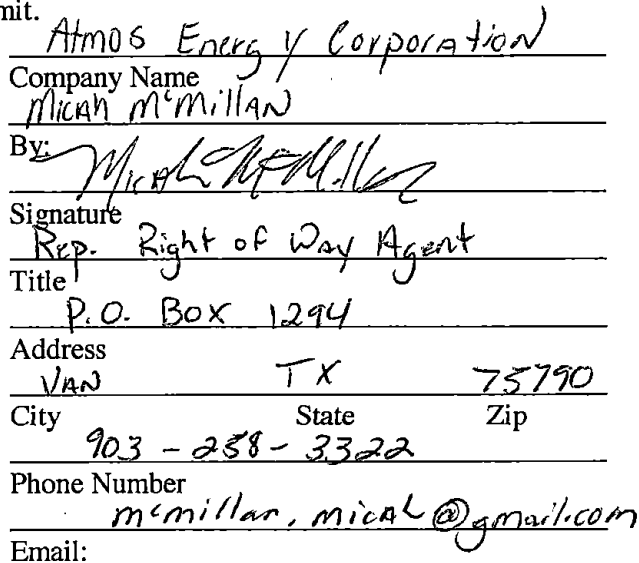 mit.
Atmos Energy Corporation
Company Name
Micah McMillan
By:
Micah McMillan
Signature
Rep. Right of Way Agent
Title
P.O. Box 1294
Address
VAN TX 75790
City State Zip
903-258-3322
Phone Number
mcmillan.micah@gmail.com
Email: